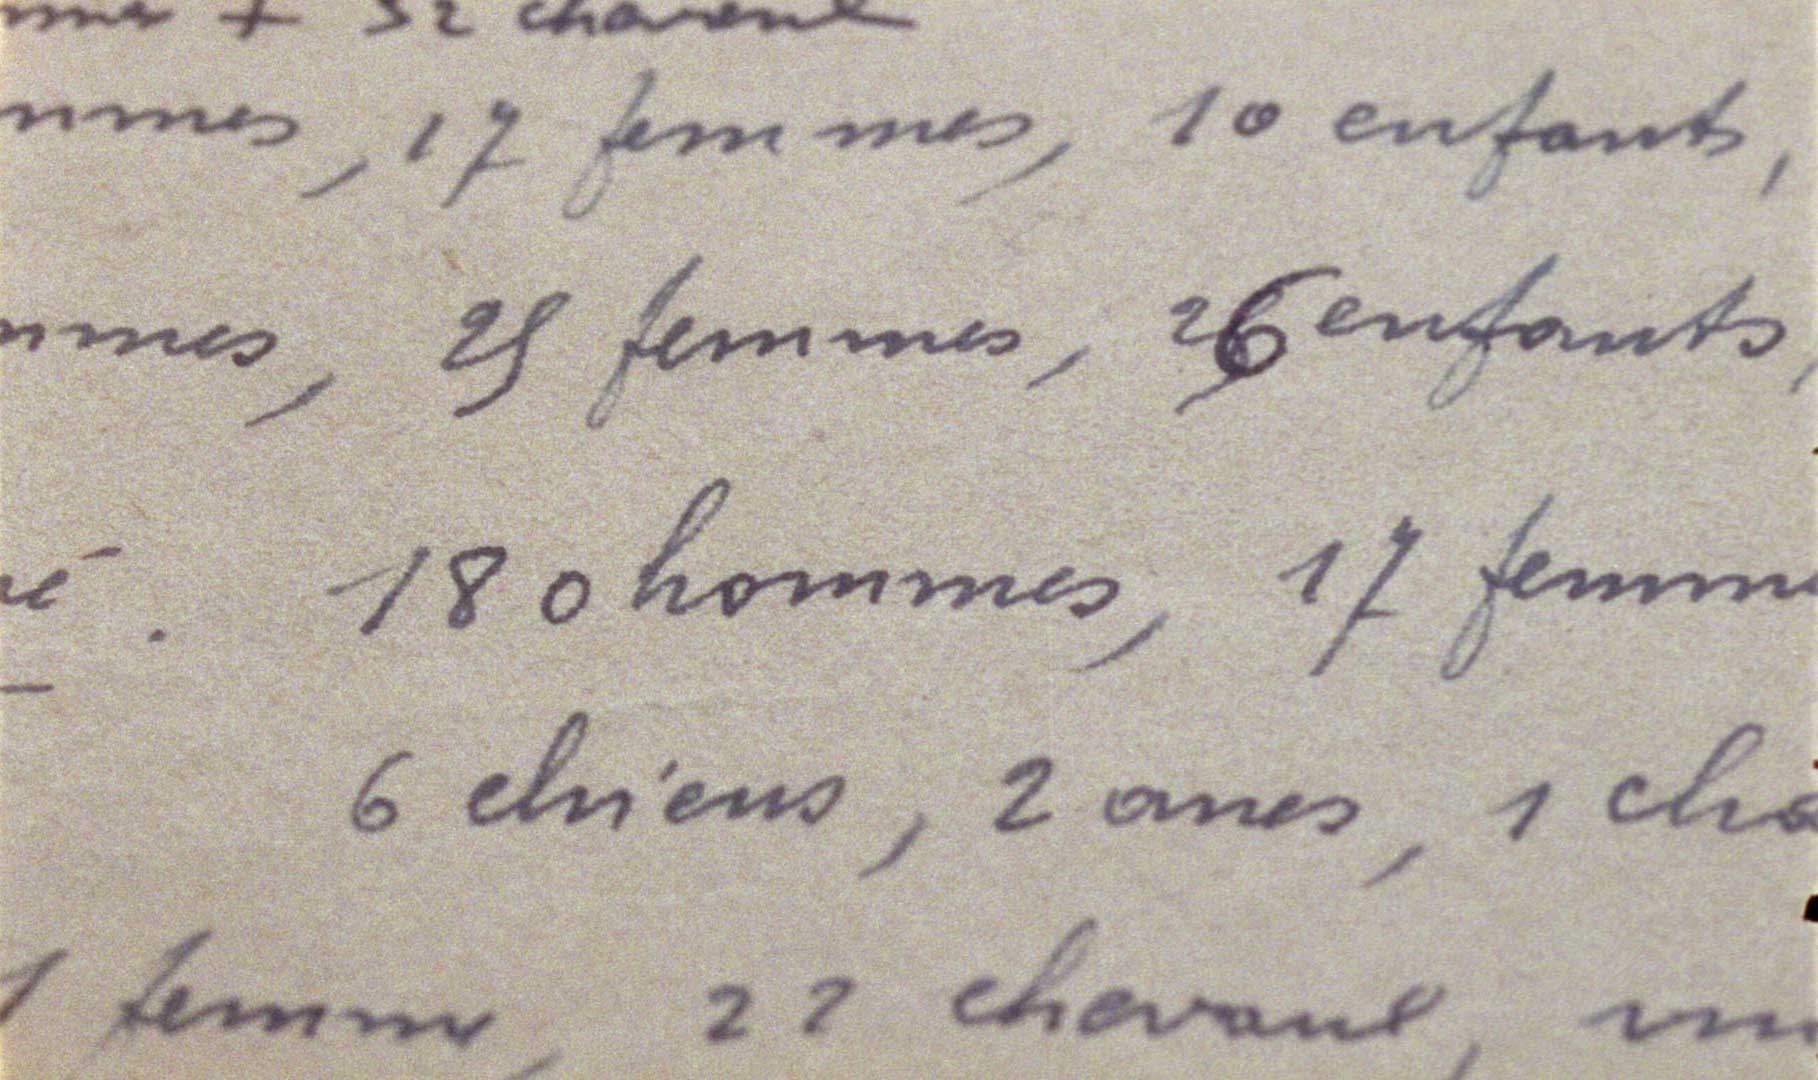 + 32 chevaux
mmes, 17 femmes, 10 enfants,
mmes, 25 femmes, 26 enfants,
é. 180 hommes, 17 femme
6 chiens, 2 anes, 1 cha
1 femme, 22 chevaux,